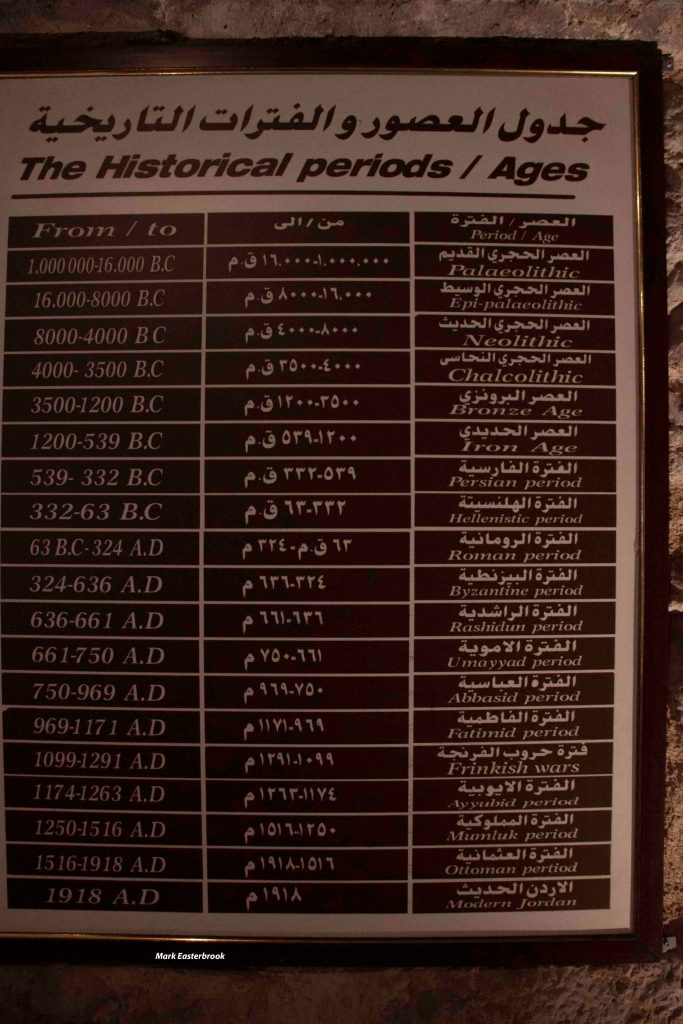 جدول العصور والفترات التاريخية
The Historical periods / Ages
From / to من / الى العصر / الفترة
Period / Age
1.000 000-16.000 B.C ١٦.٠٠٠-١.٠٠٠.٠٠٠ ق.م العصر الحجري القديم
Palaeolithic
16.000-8000 B.C ٨٠٠٠-١٦.٠٠٠ ق.م العصر الحجري الوسيط
Epi-palaeolithic
8000-4000 B C ٤٠٠٠-٨٠٠٠ ق.م العصر الحجري الحديث
Neolithic
4000- 3500 B.C ٣٥٠٠-٤٠٠٠ ق.م العصر الحجري النحاسى
Chalcolithic
3500-1200 B.C ١٢٠٠-٣٥٠٠ ق.م العصر البرونزي
Bronze Age
1200-539 B.C ٥٣٩-١٢٠٠ ق.م العصر الحديدي
Iron Age
539- 332 B.C ٣٣٢-٥٣٩ ق.م الفترة الفارسية
Persian period
332-63 B.C ٦٣-٣٣٢ ق.م الفترة الهلنستية
Hellenistic period
63 B.C-324 A.D ٦٣ ق.م-٣٢٤ م الفترة الرومانية
Roman period
324-636 A.D ٦٣٦-٣٢٤ م الفترة البيزنطية
Byzantine period
636-661 A.D ٦٦١-٦٣٦ م الفترة الراشدية
Rashidun period
661-750 A.D ٧٥٠-٦٦١ م الفترة الاموية
Umayyad period
750-969 A.D ٩٦٩-٧٥٠ م الفترة العباسية
Abbasid period
969-1171 A.D ١١٧١-٩٦٩ م الفترة الفاطمية
Fatimid period
1099-1291 A.D ١٢٩١-١٠٩٩ م فترة حروب الفرنجة
Frinkish wars
1174-1263 A.D ١٢٦٣-١١٧٤ م الفترة الايوبية
Ayyubid period
1250-1516 A.D ١٥١٦-١٢٥٠ م الفترة المملوكية
Mumluk period
1516-1918 A.D ١٩١٨-١٥١٦ م الفترة العثمانية
Ottoman pertiod
1918 A.D ١٩١٨ م الاردن الحديث
Modern Jordan
Mark Easterbrook